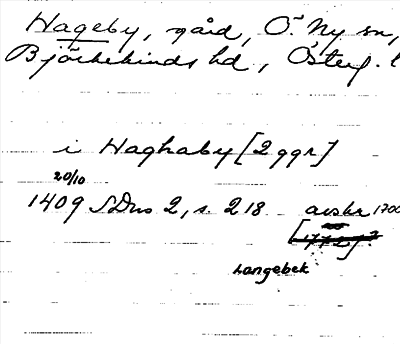 Hageby, gård, Ö. Ny sn,
Björkekinds hd, Österg. l
i Haghaby [2 ggr]
20/10
1409 SDns 2, s. 218 avskr 1700
[1772]?
Langebek